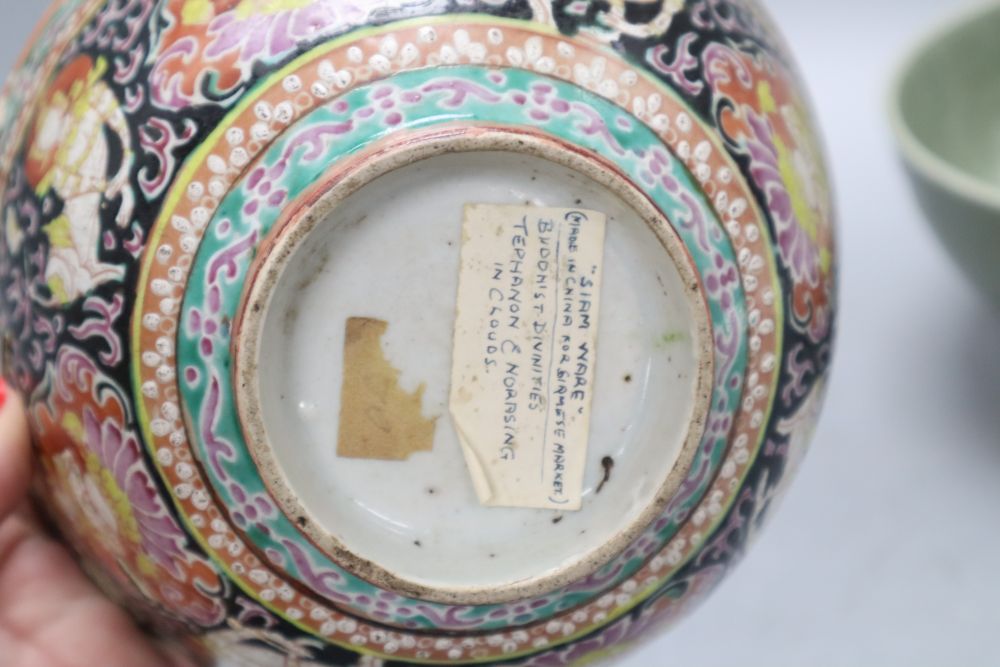 "SIAM WARE"
(MADE IN CHINA FOR SIAMESE MARKET.)
BUDDHIST DIVINITIES
TEPHANON & NORASING
IN CLOUDS.